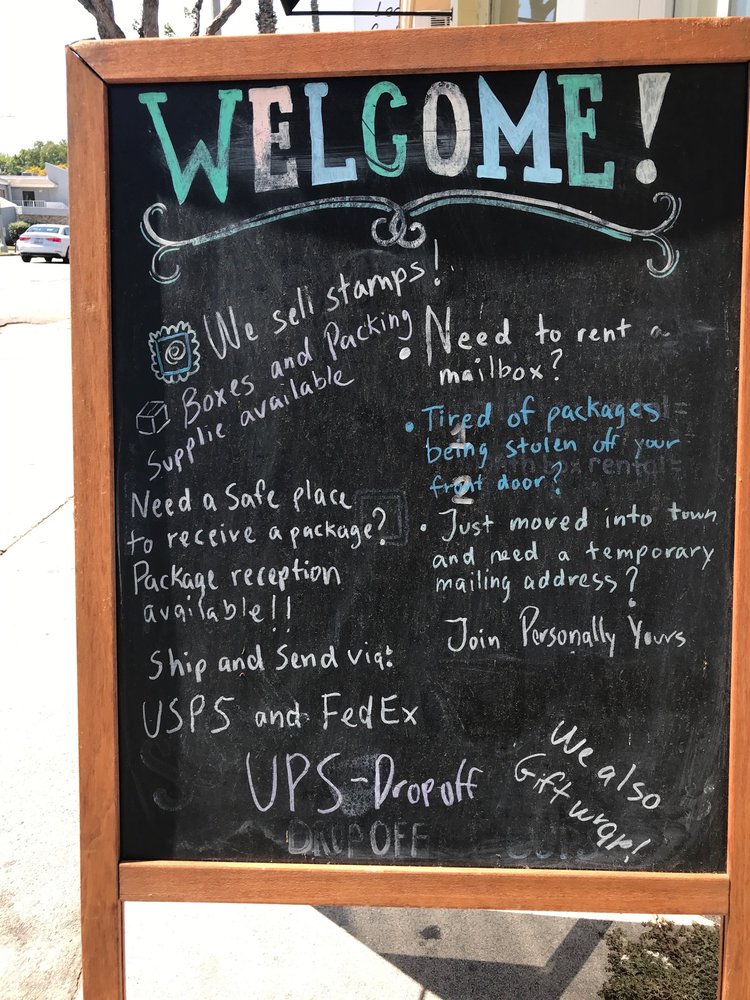 WELCOME!
We sell stamps!
Boxes and Packing
Supplie available
Need a Safe place
to receive a package?
Package reception
available!!
Ship and Send via:
USPS and FedEx
UPS-Dropoff
DROP OFF
• Need to rent a
mailbox?
• Tired of packages
being stolen off your
front door?
1
2
box rental
• Just moved into town
and need a temporary
mailing address?
Join Personally Yours
We also
Gift wrap!